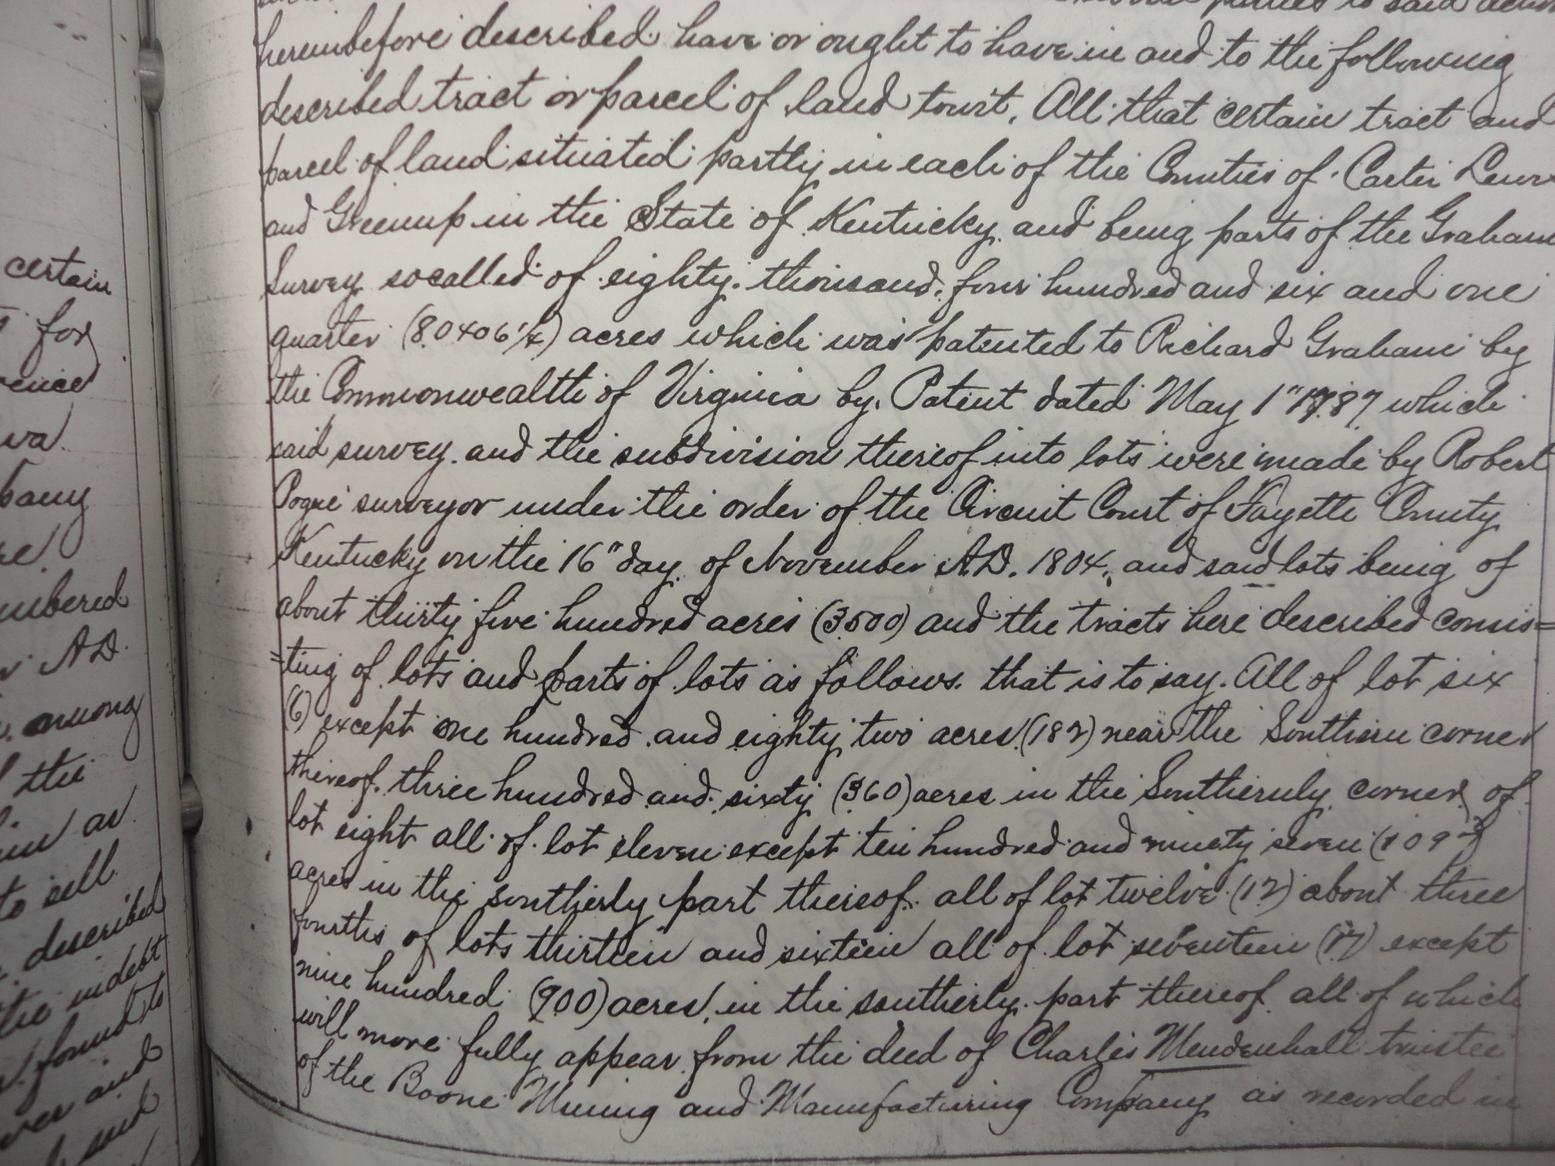 certain
for
va.
pany
re.
mbered
A.D.
among
the
as
to sell
described
the indebt
found to
over and
such
parties to said action
hereinbefore described have or ought to have in and to the following
described tract or parcel of land towit. All that certain tract and
parcel of land situated partly in each of the Counties of Carter Lewis
and Greenup in the State of Kentucky and being parts of the Graham
Survey so called of eighty thousand four hundred and six and one
quarter (80406 1/4) acres which was patented to Richard Graham by
the Commonwealth of Virginia by Patent dated May 1" 1787 which
said survey and the subdivision thereof into lots were made by Robert
Pogue surveyor under the order of the Circuit Court of Fayette County
Kentucky on the 16" day of November A.D. 1804, and said lots being of
about thirty five hundred acres (3500) and the tracts here described consis=
=ting of lots and parts of lots as follows. that is to say. All of lot six
(6) except one hundred and eighty two acres (182) near the Southern corner
thereof. three hundred and sixty (360) acres in the Southerly corner of
lot eight all of lot eleven except ten hundred and ninety seven (1097)
acres in the southerly part thereof. all of lot twelve (12) about three
fourths of lots thirteen and sixteen all of lot seventeen (17) except
nine hundred (900) acres, in the southerly part thereof all of which
will more fully appear from the deed of Charles Mendenhall trustee
of the Boone Mining and Manufacturing Company as recorded in